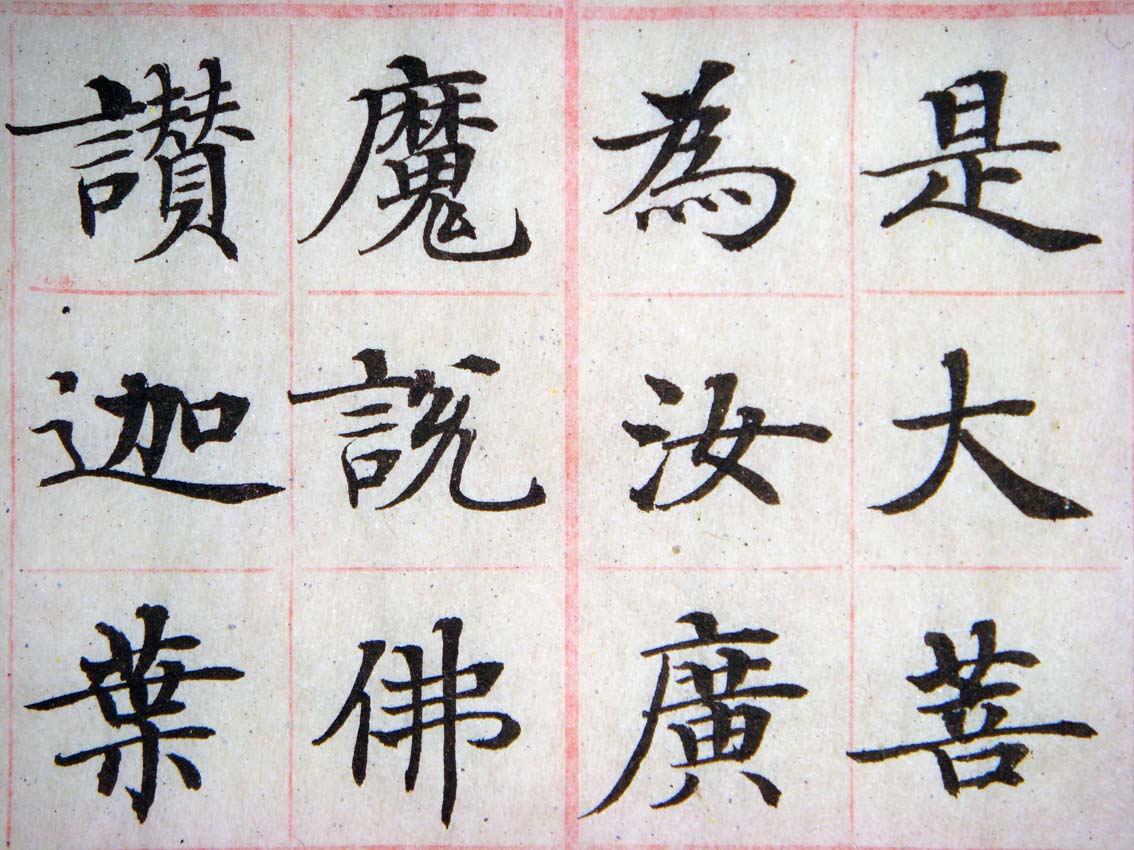 是大菩
為汝廣
魔說佛
讃迦葉